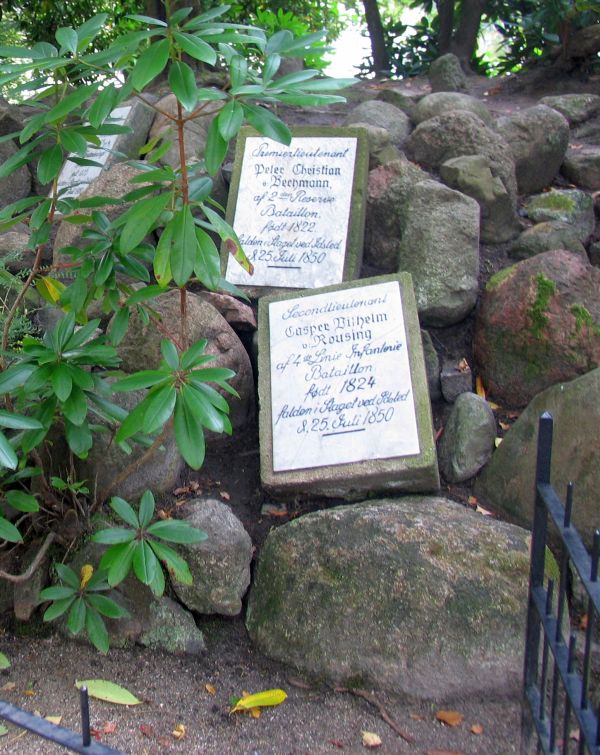 Premierlieutenant
Peter Christian
v. Bechmann,
af 2den Reserve
Bataillon,
født 1822
falden i Slaget ved Idsted
d. 25. Juli 1850
Secondlieutenant
Casper Vilhelm
v. Rousing
af 4de Linie Infanterie
Bataillon
født 1824
falden i Slaget ved Idsted
d. 25. Juli 1850